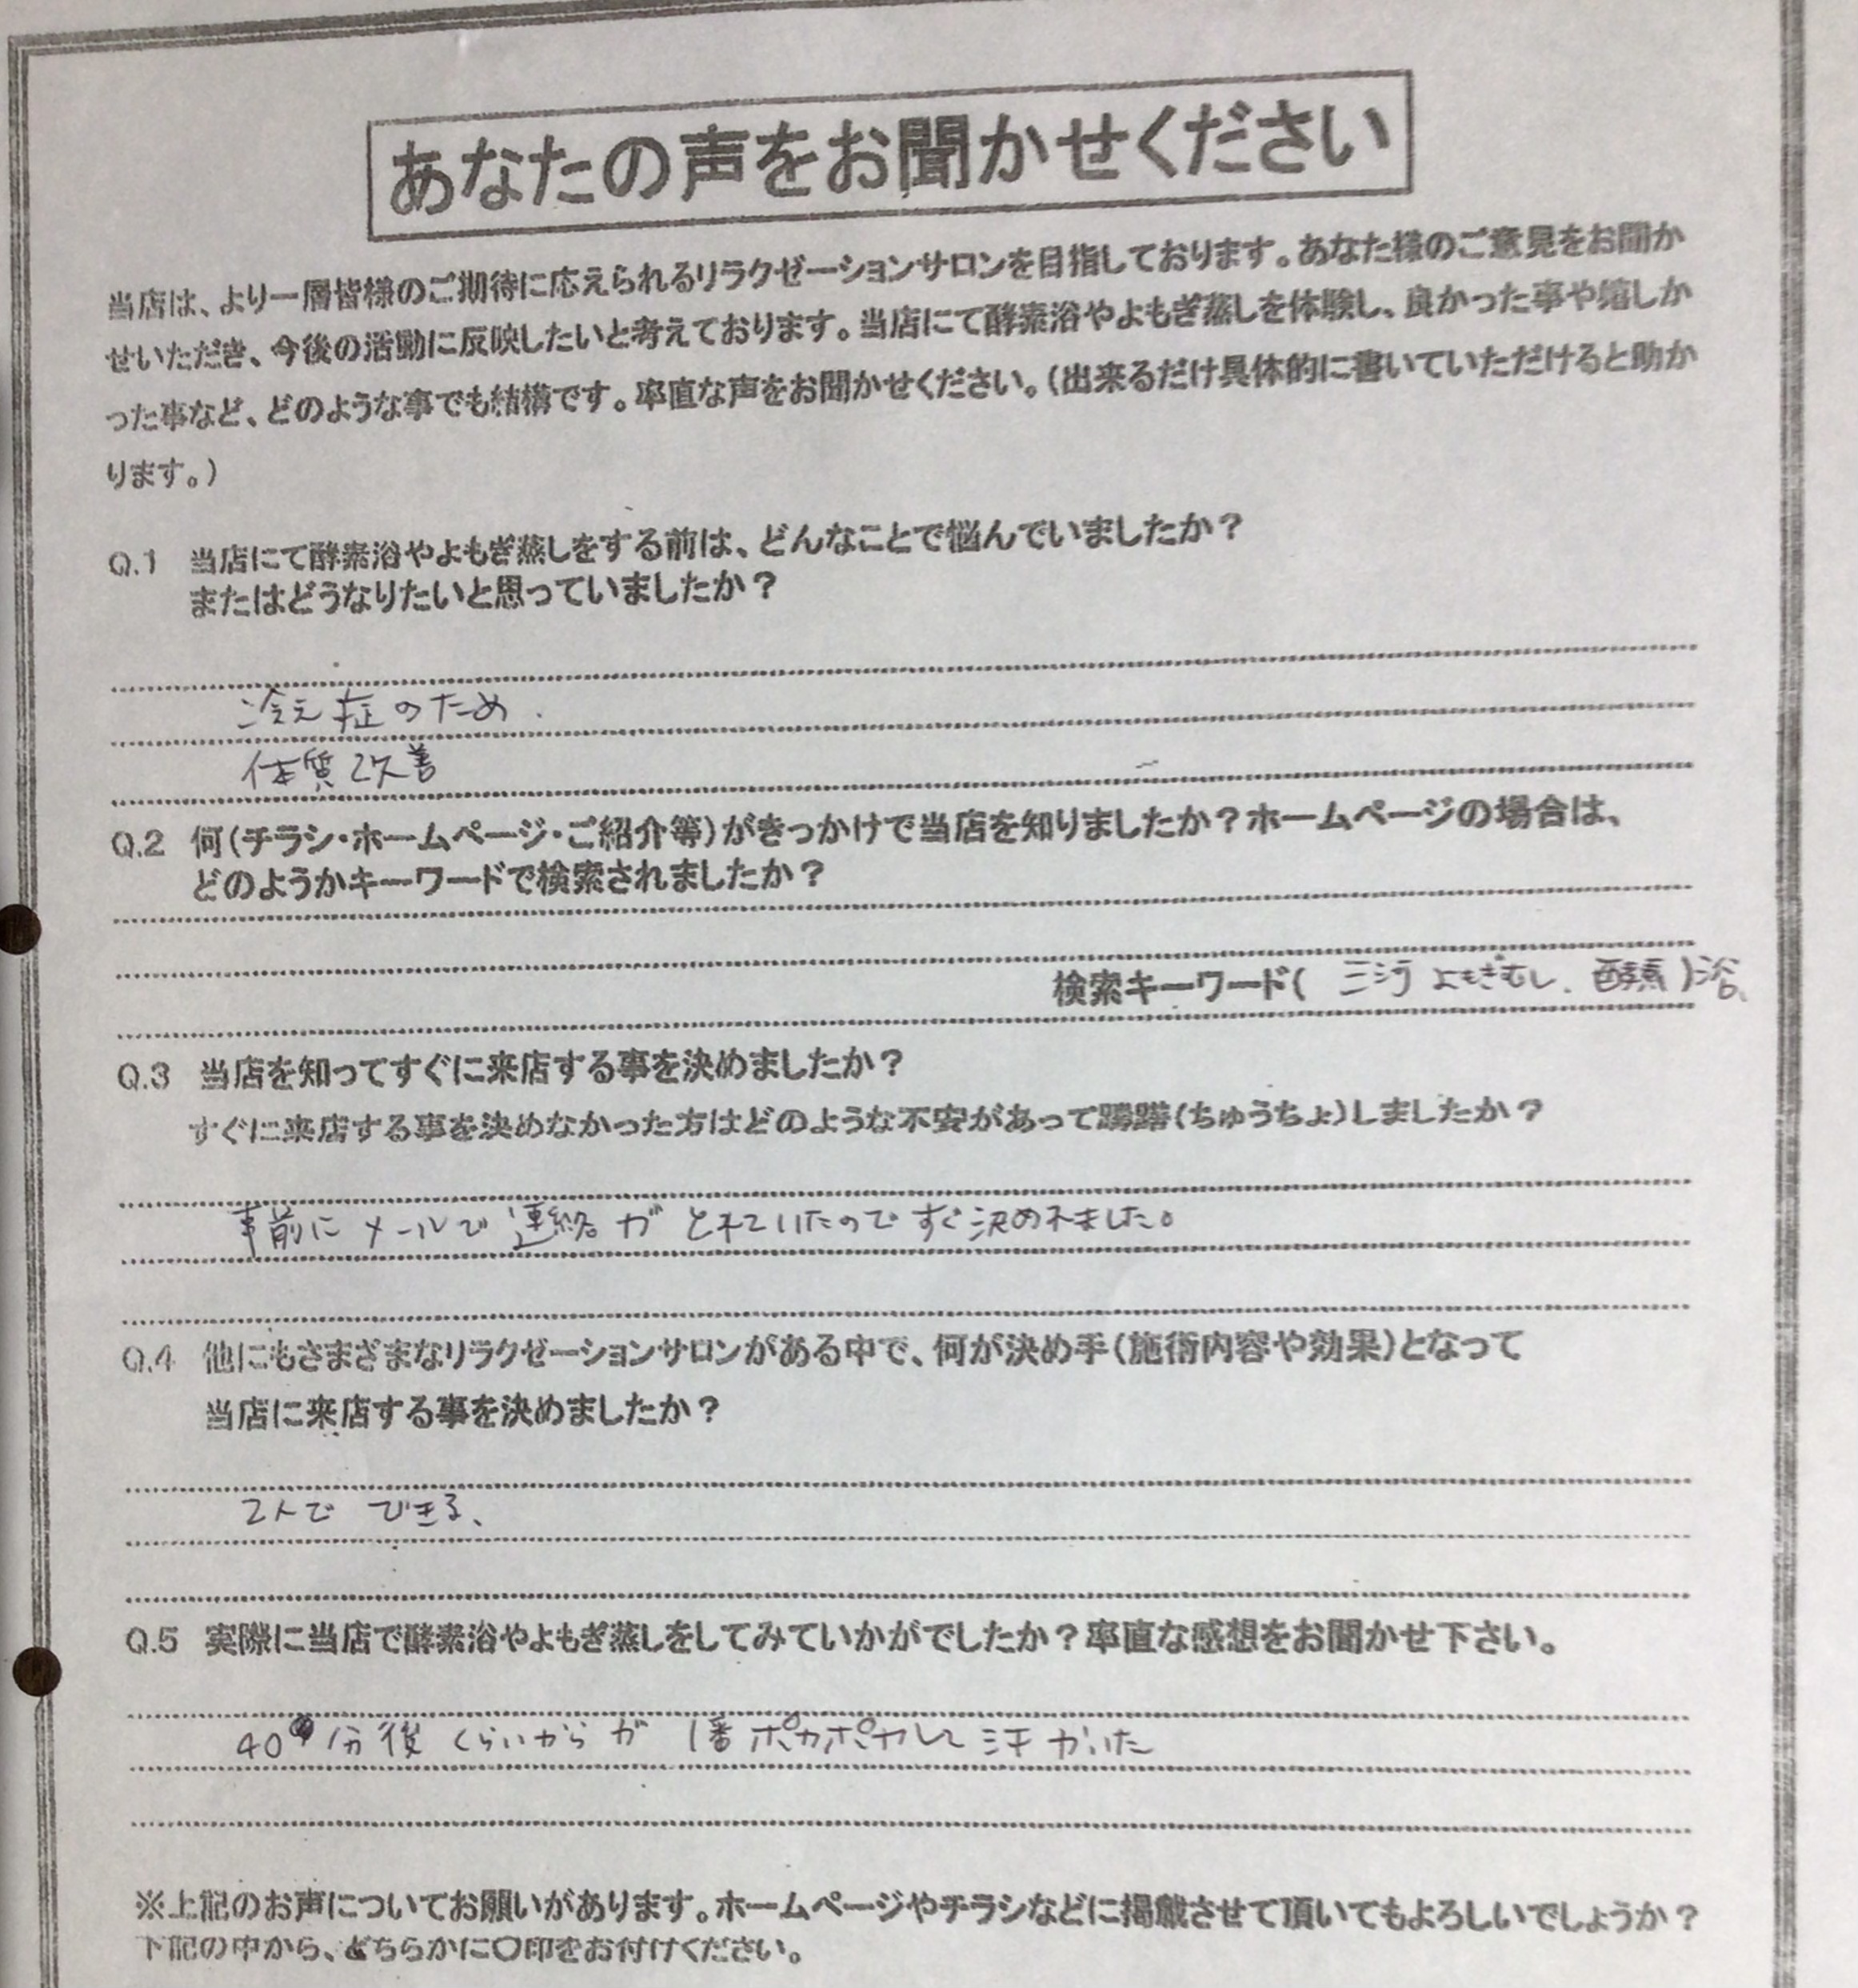 あなたの声をお聞かせください
当店は、より一層皆様のご期待に応えられるリラクゼーションサロンを目指しております。あなた様のご意見をお聞か
せいただき、今後の活動に反映したいと考えております。当店にて酵素浴やよもぎ蒸しを体験し、良かった事や嬉しか
った事など、どのような事でも結構です。率直な声をお聞かせください。(出来るだけ具体的に書いていただけると助か
ります。)
Q.1 当店にて酵素浴やよもぎ蒸しをする前は、どんなことで悩んでいましたか？
またはどうなりたいと思っていましたか？
冷え症のため.
体質改善
Q.2 何(チラシ・ホームページ・ご紹介等)がきっかけで当店を知りましたか？ホームページの場合は、
どのようかキーワードで検索されましたか？
検索キーワード( 三河 よもぎむし、酵素)浴、
Q.3 当店を知ってすぐに来店する事を決めましたか？
すぐに来店する事を決めなかった方はどのような不安があって躊躇(ちゅうちょ)しましたか？
事前にメールで連絡がとれていたのですぐ決めれました。
Q.4 他にもさまざまなリラクゼーションサロンがある中で、何が決め手(施術内容や効果)となって
当店に来店する事を決めましたか？
2人でできる、
Q.5 実際に当店で酵素浴やよもぎ蒸しをしてみていかがでしたか？率直な感想をお聞かせ下さい。
40分後くらいからが1番ポカポカして汗かいた
※上記のお声についてお願いがあります。ホームページやチラシなどに掲載させて頂いてもよろしいでしょうか？
下記の中から、どちらかに〇印をお付けください。